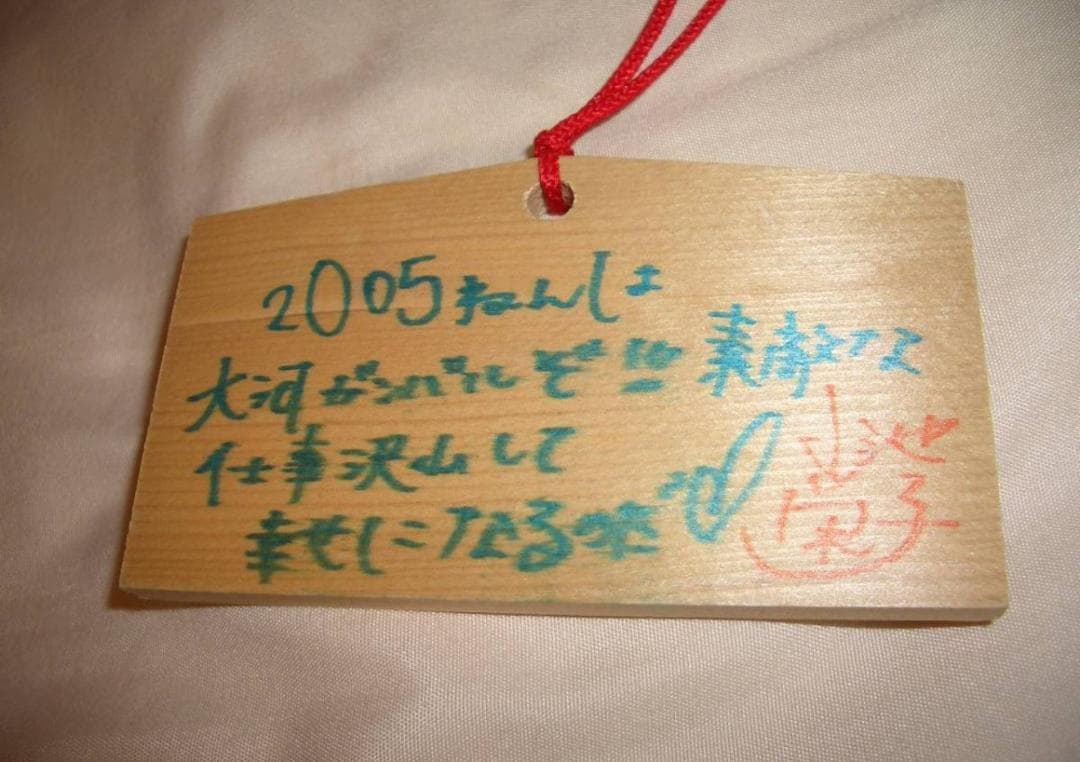 2005ねんしょ
大河がんばれしぞ!!! 素敵な
仕事沢山して
幸せになる
小池
栄子